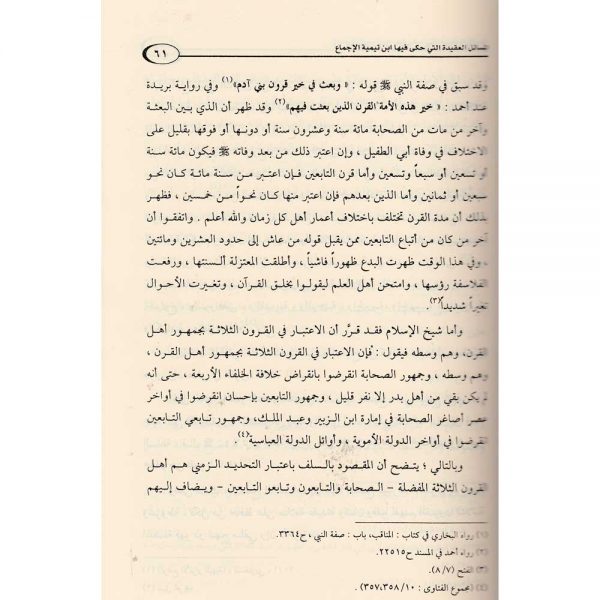 المسائل العقيدة التي حكى فيها ابن تيمية الإجماع
٦١
وقد سبق في صفة النبي ﷺ قوله : « وبعث في خير قرون بني آدم»(١) وفي رواية بريدة
عند أحمد : « خير هذه الأمة القرن الذين بعثت فيهم»(٢) وقد ظهر أن الذي بين البعثة
وآخر من مات من الصحابة مائة سنة وعشرون سنة أو دونها أو فوقها بقليل على
الاختلاف في وفاة أبي الطفيل ، وإن اعتبر ذلك من بعد وفاته ﷺ فيكون مائة سنة
أو تسعين أو سبعاً وتسعين وأما قرن التابعين فإن اعتبر من سنة مائة كان نحو
سبعين أو ثمانين وأما الذين بعدهم فإن اعتبر منها كان نحواً من خمسين ، فظهر
بذلك أن مدة القرن تختلف باختلاف أعمار أهل كل زمان والله أعلم . واتفقوا أن
آخر من كان من أتباع التابعين ممن يقبل قوله من عاش إلى حدود العشرين ومائتين
، وفي هذا الوقت ظهرت البدع ظهوراً فاشياً ، وأطلقت المعتزلة ألسنتها ، ورفعت
الفلاسفة رؤسها ، وامتحن أهل العلم ليقولوا بخلق القرآن ، وتغيرت الأحوال
تغيراً شديداً(٣).
وأما شيخ الإسلام فقد قرَّر أن الاعتبار في القرون الثلاثة بجمهور أهل
القرن، وهم وسطه فيقول : فإن الاعتبار في القرون الثلاثة بجمهور أهل القرن ،
وهم وسطه ، وجمهور الصحابة انقرضوا بانقراض خلافة الخلفاء الأربعة ، حتى أنه
لم يكن بقي من أهل بدر إلا نفر قليل ، وجمهور التابعين بإحسان إنقرضوا في أواخر
عصر أصاغر الصحابة في إمارة ابن الزبير وعبد الملك، وجمهور تابعي التابعين
انقرضوا في أواخر الدولة الأموية ، وأوائل الدولة العباسية(٤).
وبالتالي ؛ يتضح أن المقصود بالسلف باعتبار التحديد الزمني هم أهل
القرون الثلاثة المفضلة – الصحابة والتابعون وتابعو التابعين – ويضاف إليهم
(١) رواه البخاري في كتاب : المناقب، باب : صفة النبي ، ح٣٣٦٤.
(٢) رواه أحمد في المسند ح٢٢٥١٥.
(٣) الفتح (٨/٧).
(٤) مجموع الفتاوى : ٣٥٧،٣٥٨/١٠).